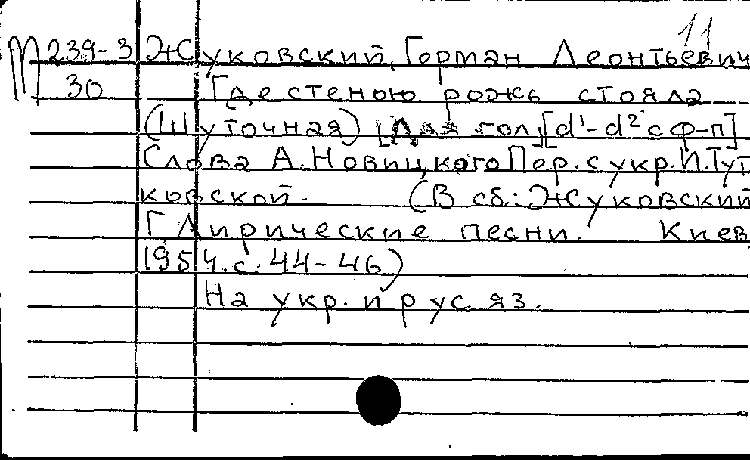 11
М 239-3 Жуковский, Герман Леонтьевич
30 Где стеною рожь стояла
(Шуточная) [Для гол.][d¹-d² с ф-п]
Слова А. Новицкого Пер. с укр. И. Тут
ковской. (В сб.: Жуковский
Г Лирические песни. Киев,
1954. с. 44-46)
На укр. и рус. яз.